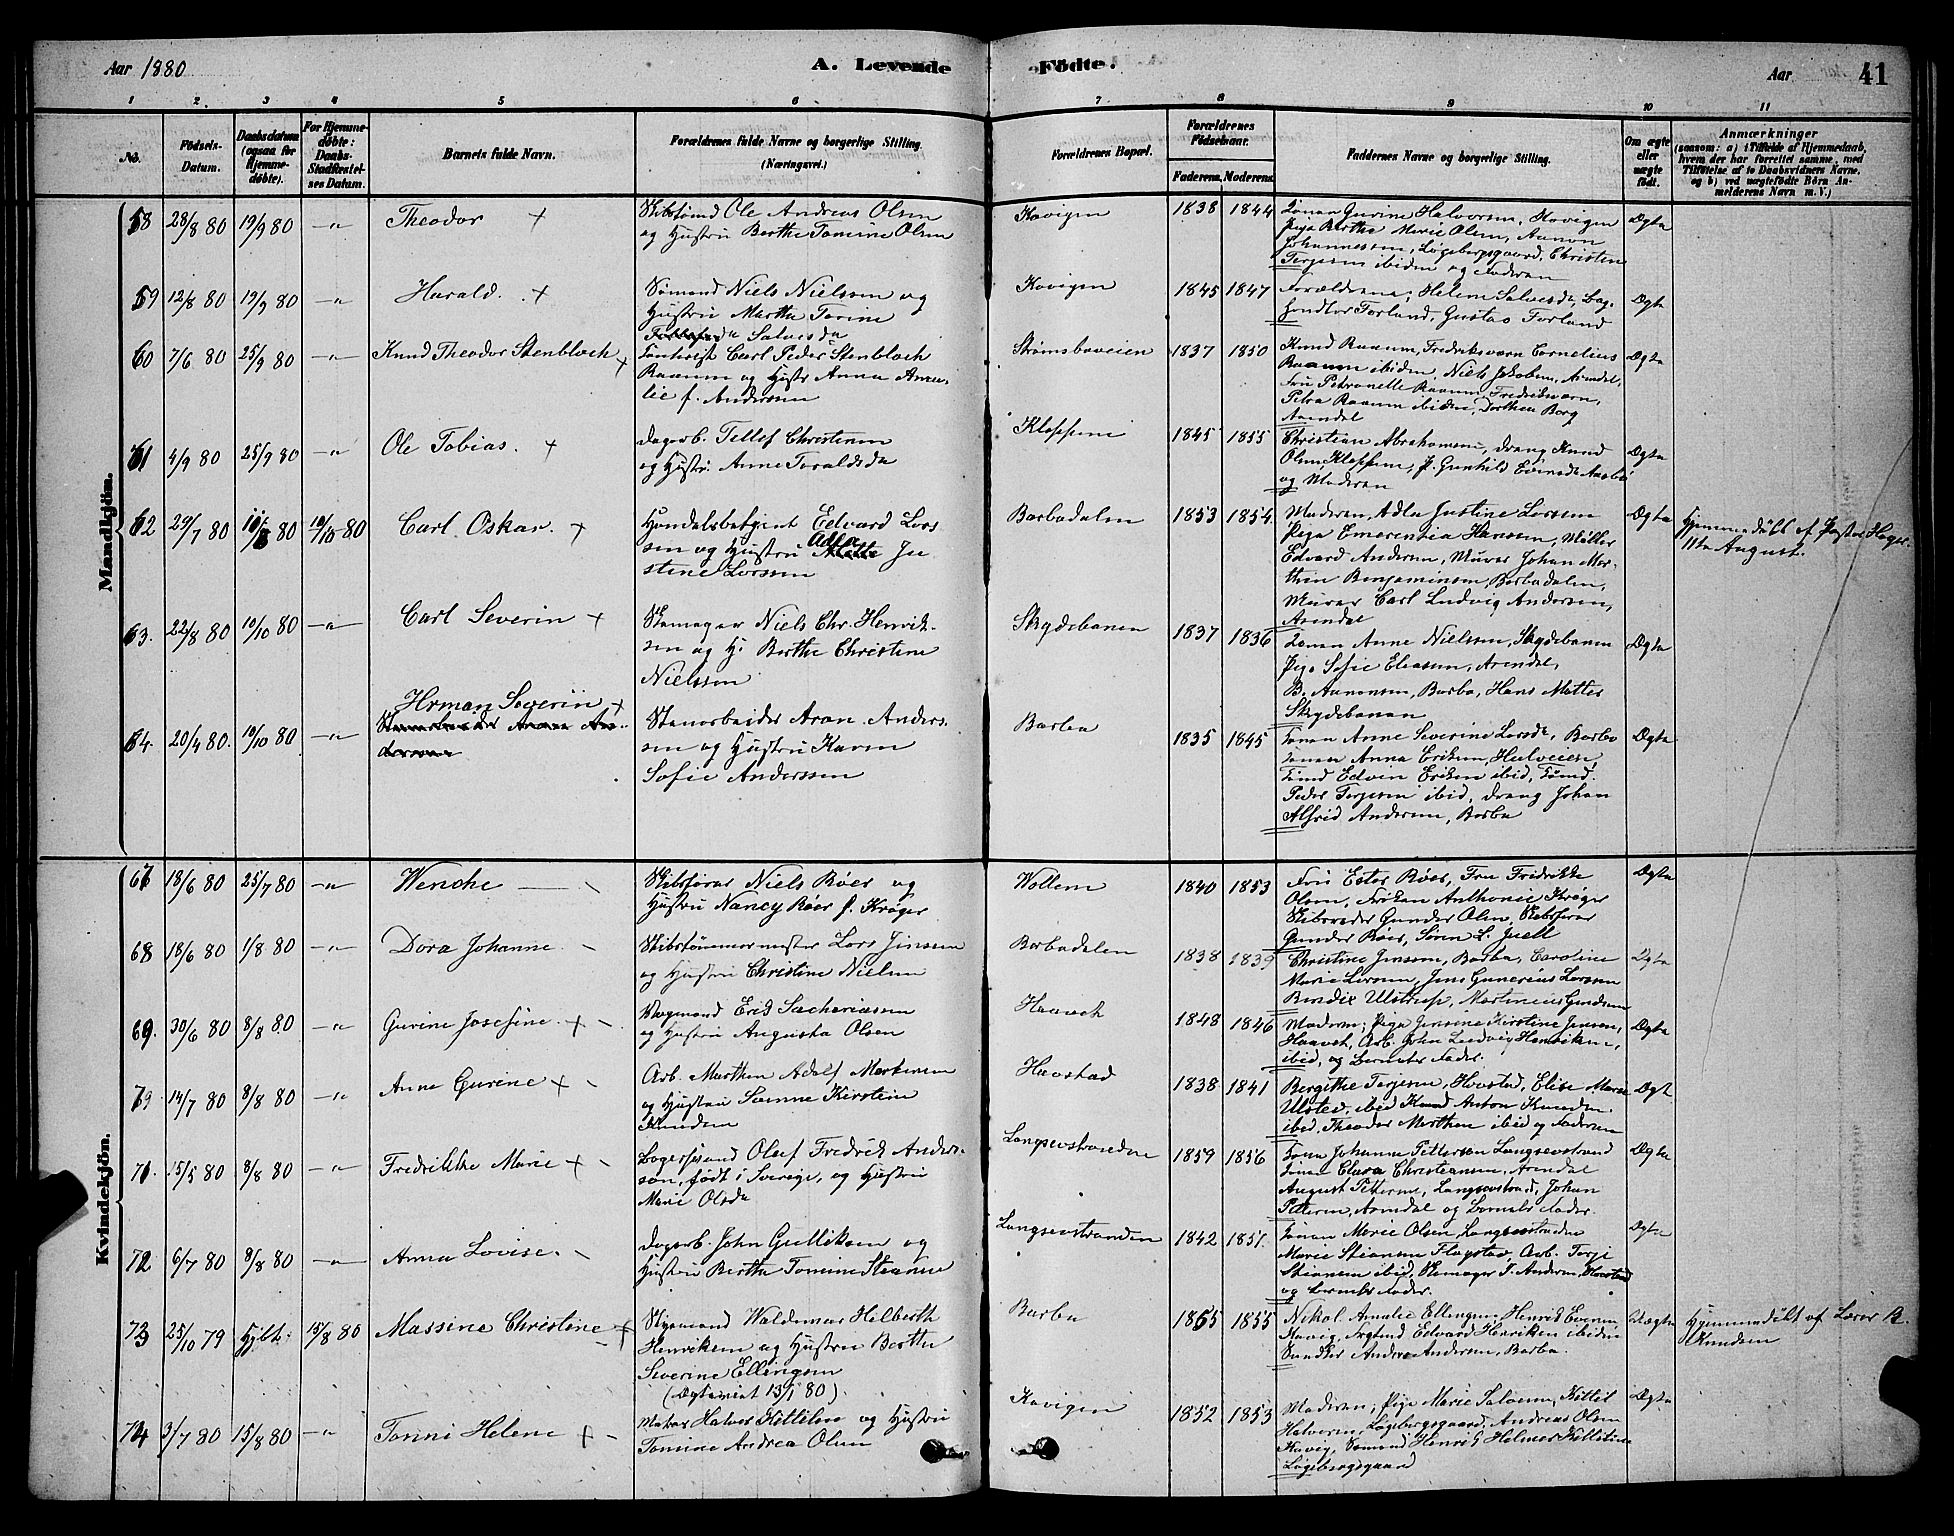 Aar 1880
A. Levende Fødte.
Aar 41
1 2. 3 4 5 6 7. 8 9 10 11
No. Fødsels-Datum. Daabsdatum (ogsaa for Hjemme-døbte). For Hjemme-døbte: Daabs-Stadfæstel-ses Datum. Barnets fulde Navn. Forældrenes fulde Navne og borgerlige Stilling. (Næringsvei.) Forældrenes Bopæl. Forældrenes Fødselsaar. Faderens. Moderens. Faddernes Navne og borgerlige Stilling. Om ægte eller uægte født. Anmærkninger (saasom: a) i Tilfælde af Hjemmedaab, hvem der har forrettet samme, med Tilføielse af to Daabsvidners Navne, og b) ved uægtefødte Børn An-melderens Navn m. V.)
Mandkjön.
58 28/8 80 19/9 80 -"- Theodor +
Ole Andreas Olsen
og Hustru Berthe Tomine Olsen
Kovigen 1838 1844
Gurine Halvorsen, Kovigen
Pige Berthe Marie Olsen, Aanon
Johannessen, Løgebergsgaard, Christen
Terjesen ibiden og Faderen
Ægte
59 12/8 80 19/9 80 -"- Harald. +
Sømand Niels Nielssen og
Hustru Marthe Torine
Salvesda
Kovigen 1845 1847
Forældrene, Helene Salvesdr,
Torland, Gustav Torland
Ægte
60 7/6 80 25/9 80 -"- Knud Theodor Stenbloch +
Carl Peder Stenbloch
Raaum og Hustr Anna Ama-
lie f. Anderssen
Strømsboveien 1837 1850
Knud Raaum, Fredriksværn Cornelius
Raaum ibiden, Niels Jakobsen, Arendal,
Fru Petronelle Raaum, Fredriksværn,
Petra Raaum ibiden, Dorthea Borg
Arendal
Ægte
61 4/9 80 25/9 80 -"- Ole Tobias. +
Dagarb. Tellef Christensen
og Hustru Anne Toraldsda
Kloppene 1845 1855
Christian Abrahamsen, Dreng Knud
Olsen, Kloppene, P. Gunhild
og Moderen
Ægte
62 29/7 80 11/8 80 10/10 80 Carl Oskar. +
Handelsbetjent Edvard Lars-
sen og Hustru Adla Ju
stine Larssen
Barbodalen 1853 1854
Moderen, Adla Justine Larssen
Pige Emerentia Hanssen, Møller
Edvard Andersen, Murer Johan Mar-
thin Benjaminsen, Barbodalen,
Murer Carl Ludvig Andersen,
Arendal
Ægte Hjemmedøbt af Pastor
11te August.
63. 22/8 80 10/10 80 -"- Carl Severin +
Niels Chr. Henrik-
sen og H. Berthe Christine
Nielssen
Skydebanen 1837 1836
Anne Nielssen, Skydebanen
Pige Sofie Eliasen, Arendal,
B. Aanonsen, Barbo, Hans Møller
Skydebanen
Ægte
64. 20/4 80. 10/10 80 -"- Herman Severin +
Stenarbeider Aron Anders-
sen og Hustru Karen
Sofie Anderssen
Barbo 1835 1845
Anne Severine Larsdr, Barbo
Anna Eriksen,
Edvin Eriksen ibid,
Peder Terjesen ibid, Dreng Johan
Alfrid Andersen, Barbo
Ægte
Kvindekjön.
67 18/6 80 25/7 80 -"- Wenche
Skibsfører Niels Røer og
Hustru Nancy Røer f. Krøger
Vollene 1840 1853
Fru Ester Røer, Fru Fredrikke
Olsen, Frøken Anthonie Krøger
Skibsreder Gunder Olsen, Skibsfører
Gunder Røer, Søren L. Juell
Ægte
68 18/6 80 1/8 80 -"- Dora Johanne.
Skibstømmermester Lars Jenssen
og Hustru Christine Nielsen
Barbodalen 1838 1839
Christine Jenssen, Barbo, Caroline
Marie Larssen, Jens Gunerius Larssen
Bendix Ulstrup,
Ægte
69. 30/6 80 8/8 80 -"- Gurine Josefine. +
Erik Sachariassen
og Hustru Augusta Olsen
Haavet 1848 1846
Moderen; Pige Jensine Kirstine Jensen,
Haavet, Arb. John Ludvig Henriksen,
ibid, og Barnets Fader.
Ægte
14/7 80 8/8 80 -"- Anne Gurine +
Arb. Marthen Adolf
og Hustru Kirstein
Knudsen
Havstad 1838 1841
Bergithe Terjesen, Havstad, Elise Marie
ibid Anton Knudsen
ibid, Theodor Marthen ibid og Faderen
Ægt.
71. 15/5 80 8/8 80 -"- Fredrikke Marie +
Bagersvend Oluf Fredrik Anders-
son, født i Sverige, og Hustru
Marie Olsda
Langsevstranden 1859 1856
Johanne Pettersen Langsevstrand
Clara Christiansen, Arendal
August Pettersen, Langsevstrand, Johan
Pettersen, Arendal og Barnets Fader.
Ægte
72 6/7 80 8/8 80 -"- Anna Lovise.
Dagarb. John Gulliksen og
Hustru Berthe Tomine
Langsevstranden 1842 1851.
Marie Olsen Langsevstranden
Marie Flagstad, Arb. Terje
ibid, T. Andersen,
og Barnets Fader.
Ægte
73 23/10 79 Hjdbt. 15/8 80 Massine Christine +
Styrmand Waldemar Helberth
Henriksen og Hustru Berthe
Severine Ellingsen
(Ægteviet 13/1 80).
Barbo 1855 1855
Nikol. Amalie Ellingsen, Henrik Evensen,
Edvard Henriksen ibiden
Snedker Anders Andersen, Barbo.
Uægte Hjemmedøbt af Lærer R.
Knudsen
74 3/7 80 15/8 80 -"- Tonni Helene +
Halvor Kittilsen og Hustru
Tomine Andrea Olsen
Kovigen 1852 1853
Moderen; Pige Marie Salvesen, Kittil
Halvorsen, Løgebergsgaard, Andreas Olsen
Kovig, Sømand Henrik Helmer Kittilsen
Løgebergsgaard
Ægte